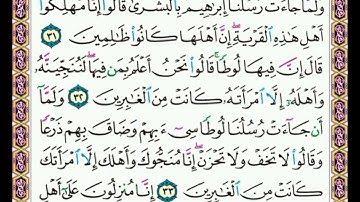 وَلَمَّا جَآءَتۡ رُسُلُنَآ إِبۡرَٰهِيمَ بِٱلۡبُشۡرَىٰ قَالُوٓاْ إِنَّا مُهۡلِكُوٓاْ
أَهۡلِ هَٰذِهِ ٱلۡقَرۡيَةِۖ إِنَّ أَهۡلَهَا كَانُواْ ظَٰلِمِينَ ٣١
قَالَ إِنَّ فِيهَا لُوطٗاۚ قَالُواْ نَحۡنُ أَعۡلَمُ بِمَن فِيهَاۖ لَنُنَجِّيَنَّهُۥ
وَأَهۡلَهُۥٓ إِلَّا ٱمۡرَأَتَهُۥ كَانَتۡ مِنَ ٱلۡغَٰبِرِينَ ٣٢ وَلَمَّآ
أَن جَآءَتۡ رُسُلُنَا لُوطٗا سِيٓءَ بِهِمۡ وَضَاقَ بِهِمۡ ذَرۡعٗا
وَقَالُواْ لَا تَخَفۡ وَلَا تَحۡزَنۡ إِنَّا مُنَجُّوكَ وَأَهۡلَكَ إِلَّا ٱمۡرَأَتَكَ
كَانَتۡ مِنَ ٱلۡغَٰبِرِينَ ٣٣ إِنَّا مُنزِلُونَ عَلَىٰٓ أَهۡلِ